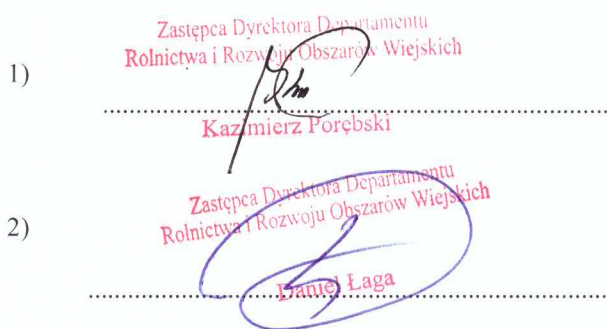 Zastępca Dyrektora Departamentu
Rolnictwa i Rozwoju Obszarów Wiejskich
1)
Kazimierz Porębski
Zastępca Dyrektora Departamentu
Rolnictwa i Rozwoju Obszarów Wiejskich
2)
Daniel Łaga